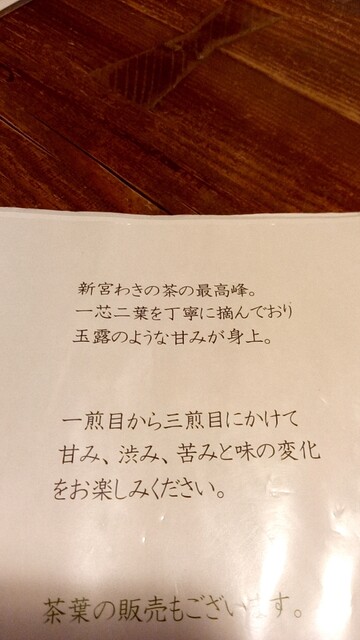 新宮わきの茶の最高峰。
一芯二葉を丁寧に摘んでおり
玉露のような甘みが身上。
一煎目から三煎目にかけて
甘み、渋み、苦みと味の変化
をお楽しみください。
茶葉の販売もございます。